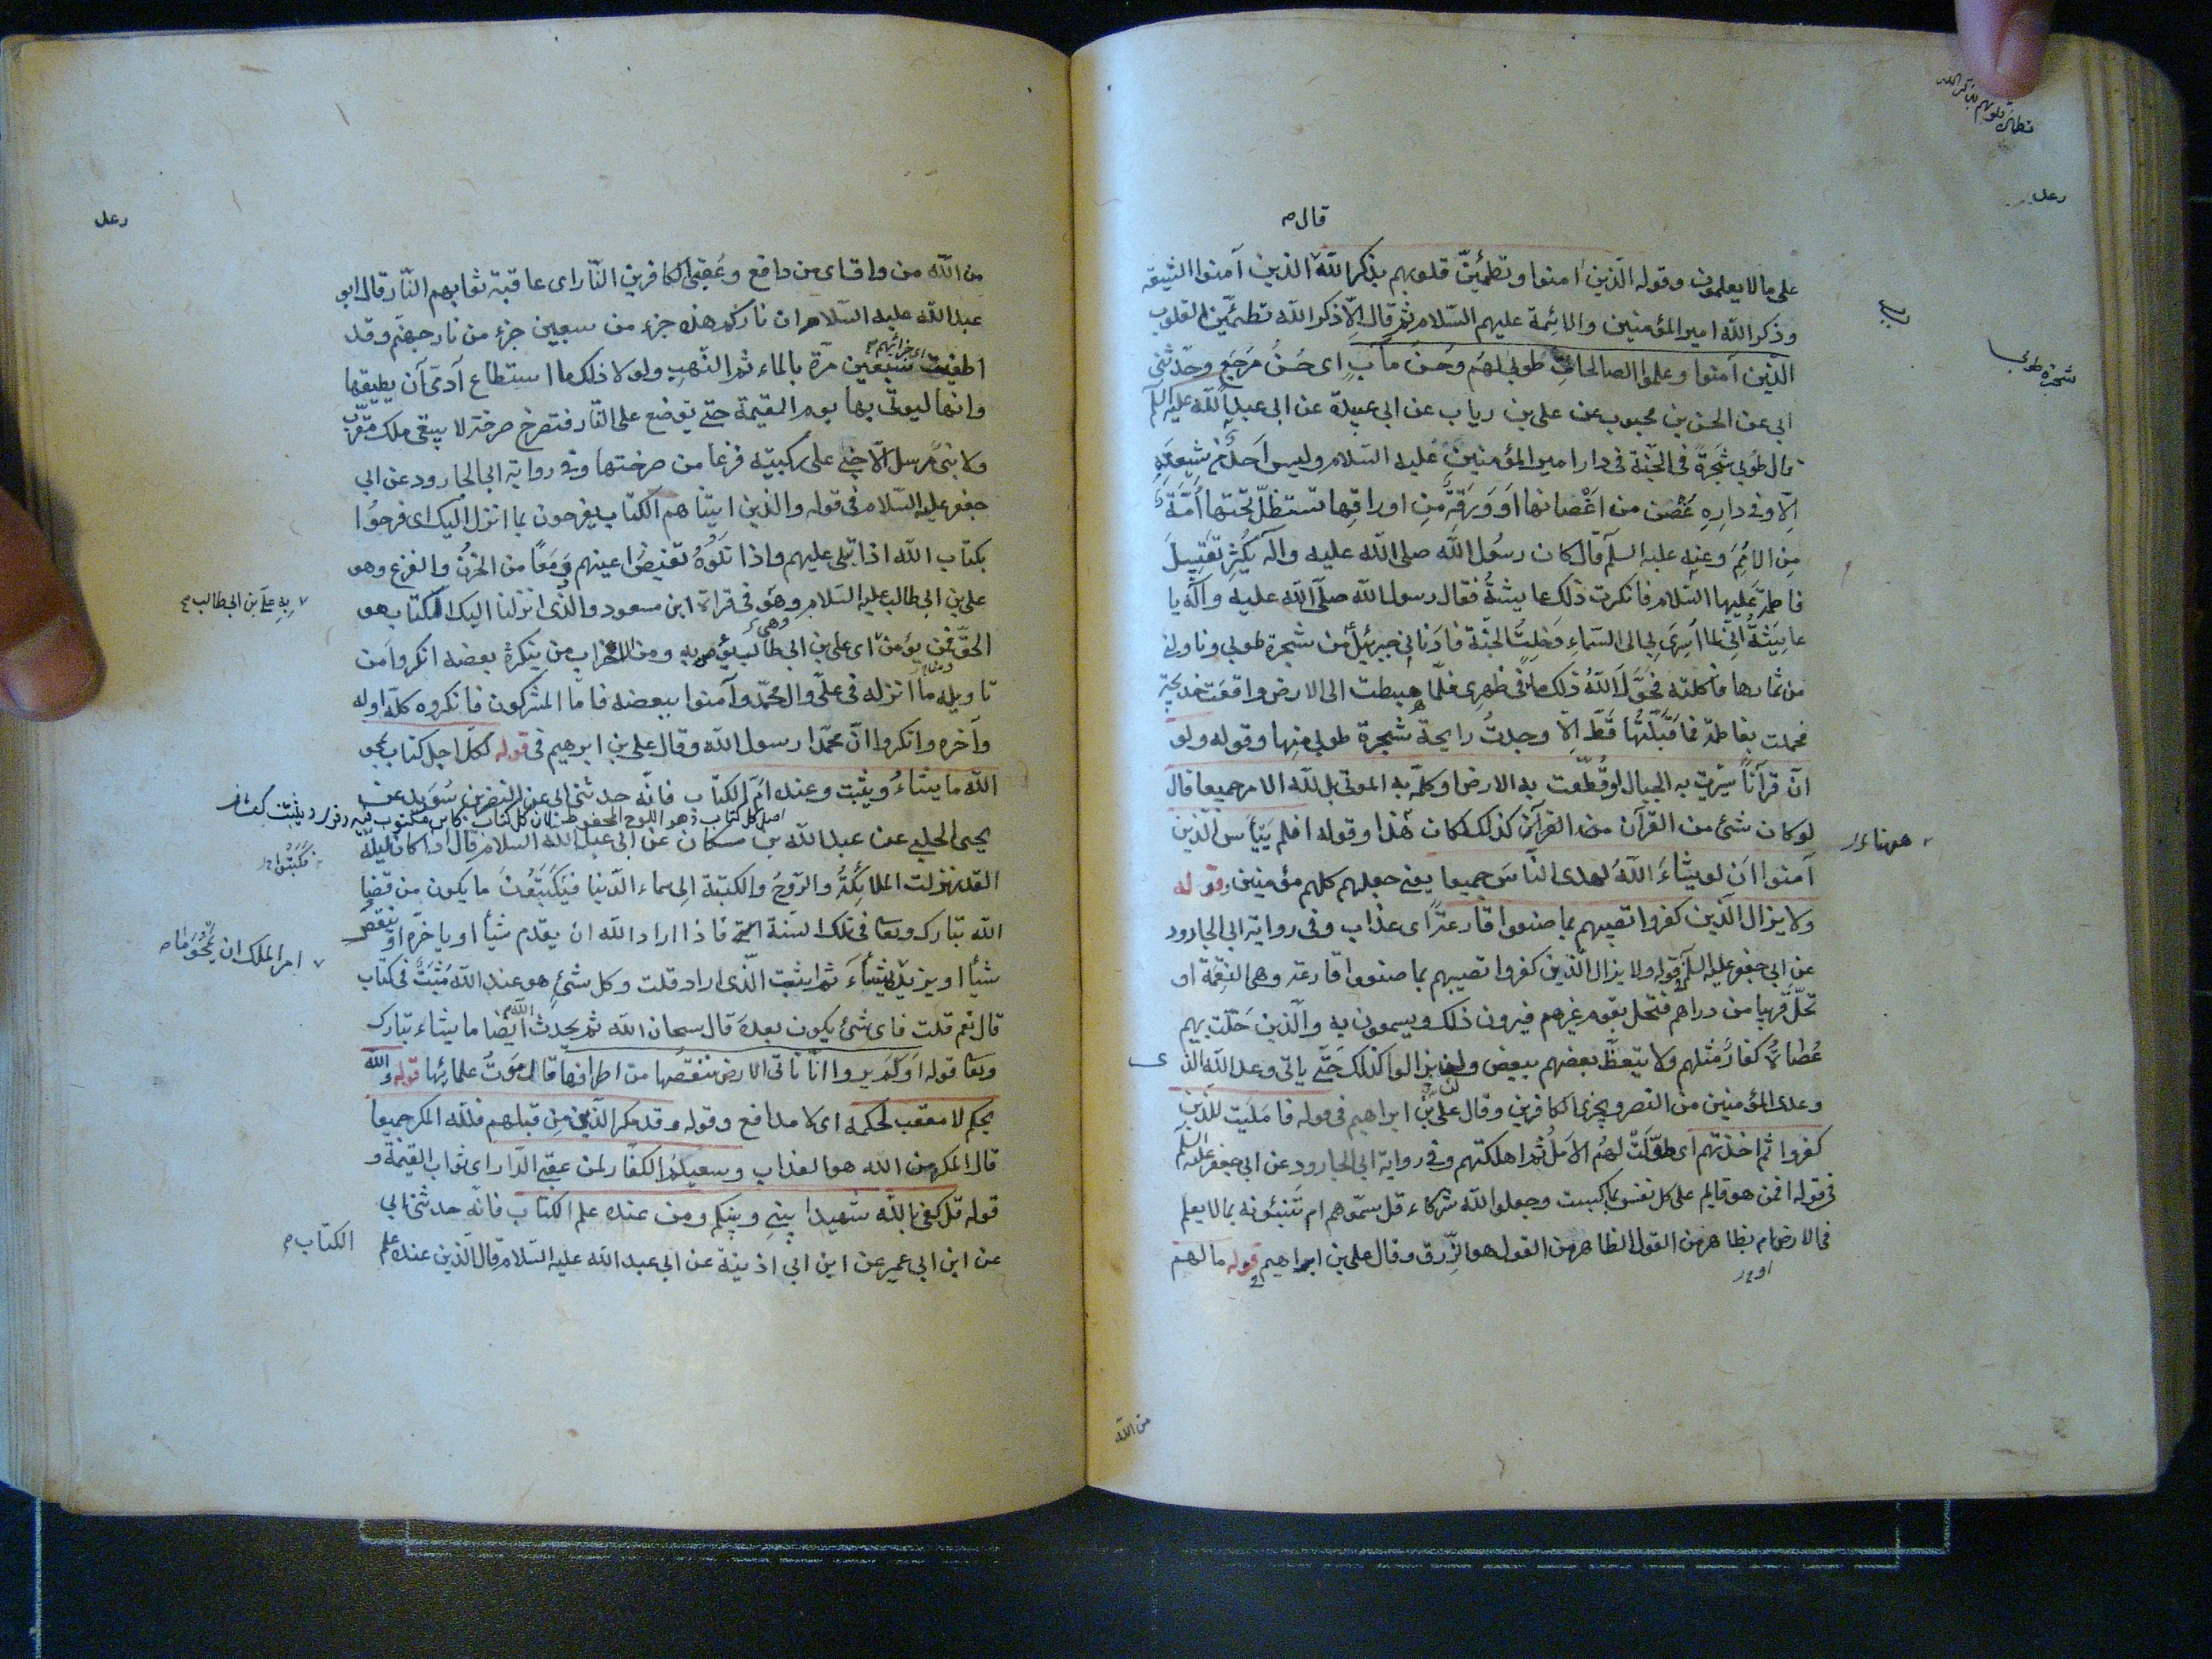 تطمئن قلوبهم بذكر الله
رعد
قال م
على ما لا يعلمون وقوله الّذين امنوا وتطمئنّ قلوبهم بذكر الله الذين آمنوا الشيعة
وذكر الله امير المؤمنين والائمة عليهم السّلام ثم قال الا بذكر الله تطمئنّ القلوب
الّذين آمنوا وعملوا الصالحات طوبى لهم وحسن مآب اى حسن مرجع وحدّثنى
شجرة طوبى
ابى عن الحسن بن محبوب عن على بن رياب عن ابى عبيدة عن ابى عبد الله عليه السلم
قال طوبى شجرة فى الجنّة فى دار امير المؤمنين عليه السّلام وليس احد من شيعته
الّا وفى داره غصن من اغصانها او ورقة من اوراقها تستظلّ تحتها امّة
من الامم وعنه عليه السلم قال كان رسول الله صلى الله عليه وآله يكثر تقبيل
فاطمة عليها السّلام فانكرت ذلك عايشة فقال رسول الله صلّى الله عليه وآله يا
عايشة انّى لما اسرى بى الى السّماء دخلت الجنّة فادنانى جبرئيل من شجرة طوبى وناولنى
من ثمارها فاكلته فحوّل الله ذلك ماء فى ظهرى فلمّا هبطت الى الارض واقعت خديجة
فحملت بفاطمة فما قبّلتها قطّ الّا وجدت رايحة شجرة طوبى منها وقوله ولو
انّ قرآنا سيّرت به الجبال او قطّعت به الارض او كلّم به الموتى بل لله الامر جميعا قال
لو كان شئ من القرآن كذلك لكان هذا وقوله افلم ييأس الّذين
آمنوا ان لو يشاء الله لهدى النّاس جميعا يعنى جعلهم كلهم مؤمنين وقوله
ولا يزال الّذين كفروا تصيبهم بما صنعوا قارعة اى عذاب وفى رواية ابى الجارود
عن ابى جعفر عليه السلم فى قوله ولا يزال الّذين كفروا تصيبهم بما صنعوا قارعة وهى النقمة او
تحلّ قريبا من دارهم فتحل بقوم غيرهم فيرون ذلك ويسمعون به والّذين حلّت بهم
عصاة كفار مثلهم ولا يتعظ بعضهم ببعض ولن يزالوا كذلك حتّى ياتى وعد الله الذى
وعد المؤمنين من النصر ويخزى الكافرين وقال على بن ابراهيم فى قوله فامليت للّذين
كفروا ثم اخذتهم اى طوّلت لهم الامل ثم اهلكتهم وفى رواية ابى الجارود عن ابى جعفر عليه السلم
فى قوله افمن هو قايم على كل نفس بما كسبت وجعلوا لله شركاء قل سمّوهم ام تنبئونه بما لا يعلم
فى الارض ام بظاهر من القول الظاهر من القول هو الرّزق وقال على بن ابراهيم فى قوله ما لهم
من الله
رعد
من الله من واق اى من دافع وعقبى الكافرين النّار اى عاقبة ثوابهم النّار قال ابو
عبد الله عليه السّلام ان ناركم هذه جزء من سبعين جزء من نار جهنّم وقد
اطفئت سبعين مرّة بالماء ثم التهبت ولو لا ذلك ما استطاع آدمىّ ان يطيقها
وانها ليوتى بها يوم القيمة حتّى توضع على النّار فتصرخ صرخة لا يبقى ملك مقرّب
ولا نبىّ مرسل الّا جثى على ركبتيه فزعا من صرختها وفى رواية ابى الجارود عن ابى
جعفر عليه السّلام فى قوله والذين اتيناهم الكتاب يفرحون بما انزل اليك اى فرحوا
بكتاب الله اذا تلى عليهم واذا تلوه تفيض اعينهم دمعا من الحزن والفزع وهو
على بن ابى طالب عليه السّلام وهو فى قراءة ابن مسعود والّذى انزلنا اليك الكتاب هو
الحقّ فمن يؤمن به اى على بن ابى طالب يؤمن به ومن الاحزاب من ينكره بعضه انكروا من
به على بن ابى طالب ع
تاويله ما انزله فى علىّ وال محمّد وآمنوا ببعضه فامّا المشركون فانكروه كلّه اوله
وآخره وانكروا انّ محمّدا رسول الله وقال على بن ابرهيم فى قوله لكلّ اجل كتاب يمحو
الله ما يشاء ويثبت وعنده امّ الكتاب فانّه حدثنى ابى عن النضر بن سويد عن
يحيى الحلبى عن عبد الله بن مسكان عن ابى عبد الله عليه السلام قال اذا كان ليلة
القدر نزلت الملائكة والرّوح والكتبة الى سماء الدّنيا فيكتبون ما يكون من قضا
الله تبارك وتعا فى تلك السّنة فاذا اراد الله ان يقدّم شيأ او ياخّره او ينقص
امر الملك ان يمحو ما
شيأ او يزيد شيأ ثم اثبت الّذى اراد قلت وكل شئ هو عند الله مثبت فى كتاب
قال نعم قلت فاى شئ يكون بعده قال سبحان الله ثم يحدث الله ايضا ما يشاء تبارك
وتعا قوله اولم يروا انّا ناتى الارض ننقصها من اطرافها قال موت علمائها قوله والله
يحكم لا معقب لحكمه اى لا مدافع وقوله وقد مكر الّذين من قبلهم فلله المكر جميعا
قال المكر من الله هو العذاب وسيعلم الكفّار لمن عقبى الدّار اى ثواب القيمة و
قوله قل كفى بالله شهيدا بينى وبينكم ومن عنده علم الكتاب فانّه حدثنى ابى
عن ابن ابى عمير عن ابن ابى اذينة عن ابى عبد الله عليه السّلام قال الّذين عنده علم
الكتاب م